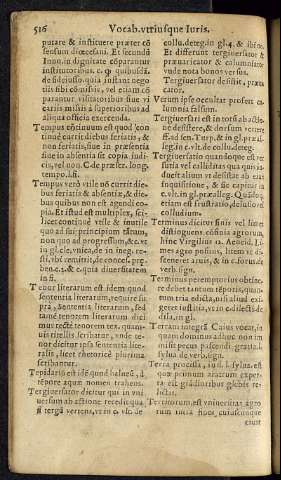 516 Vocab. vtriusque Iuris.
putare & instituere præter cō
sensum diœcesani. Et secundū
Inno. in dignitate
institutoribus.
de fideiusso. quia instant nego
tiis sibi cōmissis, vel etiam cō
parantur visitatoribus siue vi
cariis missis à superioribus ad
aliqua officia exercenda.
Tempus cōtinuum est quod con
tinuè currit diebus feriatis, &
non feriatis, siue in præsentia
siue in absentia sit copia iudi-
cis, vel non. C. de præscr. long.
tempo. l. fi.
Tempus verò vtile nō currit die-
bus feriatis & absentiæ, & die-
bus quibus non est agendi co-
pia. Et istud est multiplex, sci-
licet continuè vtile & inutile
quo ad sui principium
non quo ad progressum, &c. vt
in gl. cle.
Tenor literarum est idem quod
sententia literarum, require su
pra, Sententia literarum, sed
tamē tenorem literarum dici
mus rectè tenorem tex. quam-
uis ristellis scribatur, vnde te-
nor dicitur ipsa sententia lite-
ralis, licet rhetoricè plurima
scribantur.
Tergiuersator dicitur qui in vni
uersum ab actione recedit qua
si terga vertens, vt in c. vlt. de
collu. deteg. in gl. 4. & ibi no.
Et differunt tergiuersator &
præuaricator & calumniator
vnde nota bonos versus.
Tergiuersator desistit, præua
ricator.
Verum ipse occultat profert ca
lumnia falsum.
Tergiuersari est in toto ab actio
ne desistere, & dorsum verte-
re,
leg. in c. vlt. de collu. deteg.
Tergiuersatio quandoque est ver
sutia vel calliditas qua quis in
ducit alium vt desistat ab exe
inquisitione, & sic capitur in
c. vlt. in gl. præalleg. Quādoq.
etiam est frustratio, delusio vel
colludium.
Terminus dicitur finis vel limes
distinguens confinia agrorum,
hinc Virgilius 12. Aeneid. Li-
mes agro positus, litem vt di-
scerneret aruis, & in c. forus. de
verb. sign.
Terminus peremptorius obtine-
re debet tantum tēporis, quan-
tum tria edicta, nisi aliud exi-
geret iustitia, vt in c. edictis de
dila. in gl.
Terram integrā Caius vocat, in
quam dominus adhuc non im
misit pecus pascendi gratia. l.
sylua de verb. sign.
Terra procisa, quæ
quæ primum aratrum exper-
ta est grādioribus glebis re-
licta.
Territorium, est vniuersitas agro
rum intra fines cuiuscunque
ciuit